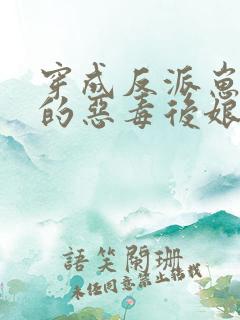 穿成反派崽
的惡毒後娘
語笑闌珊
未經同意禁止轉載